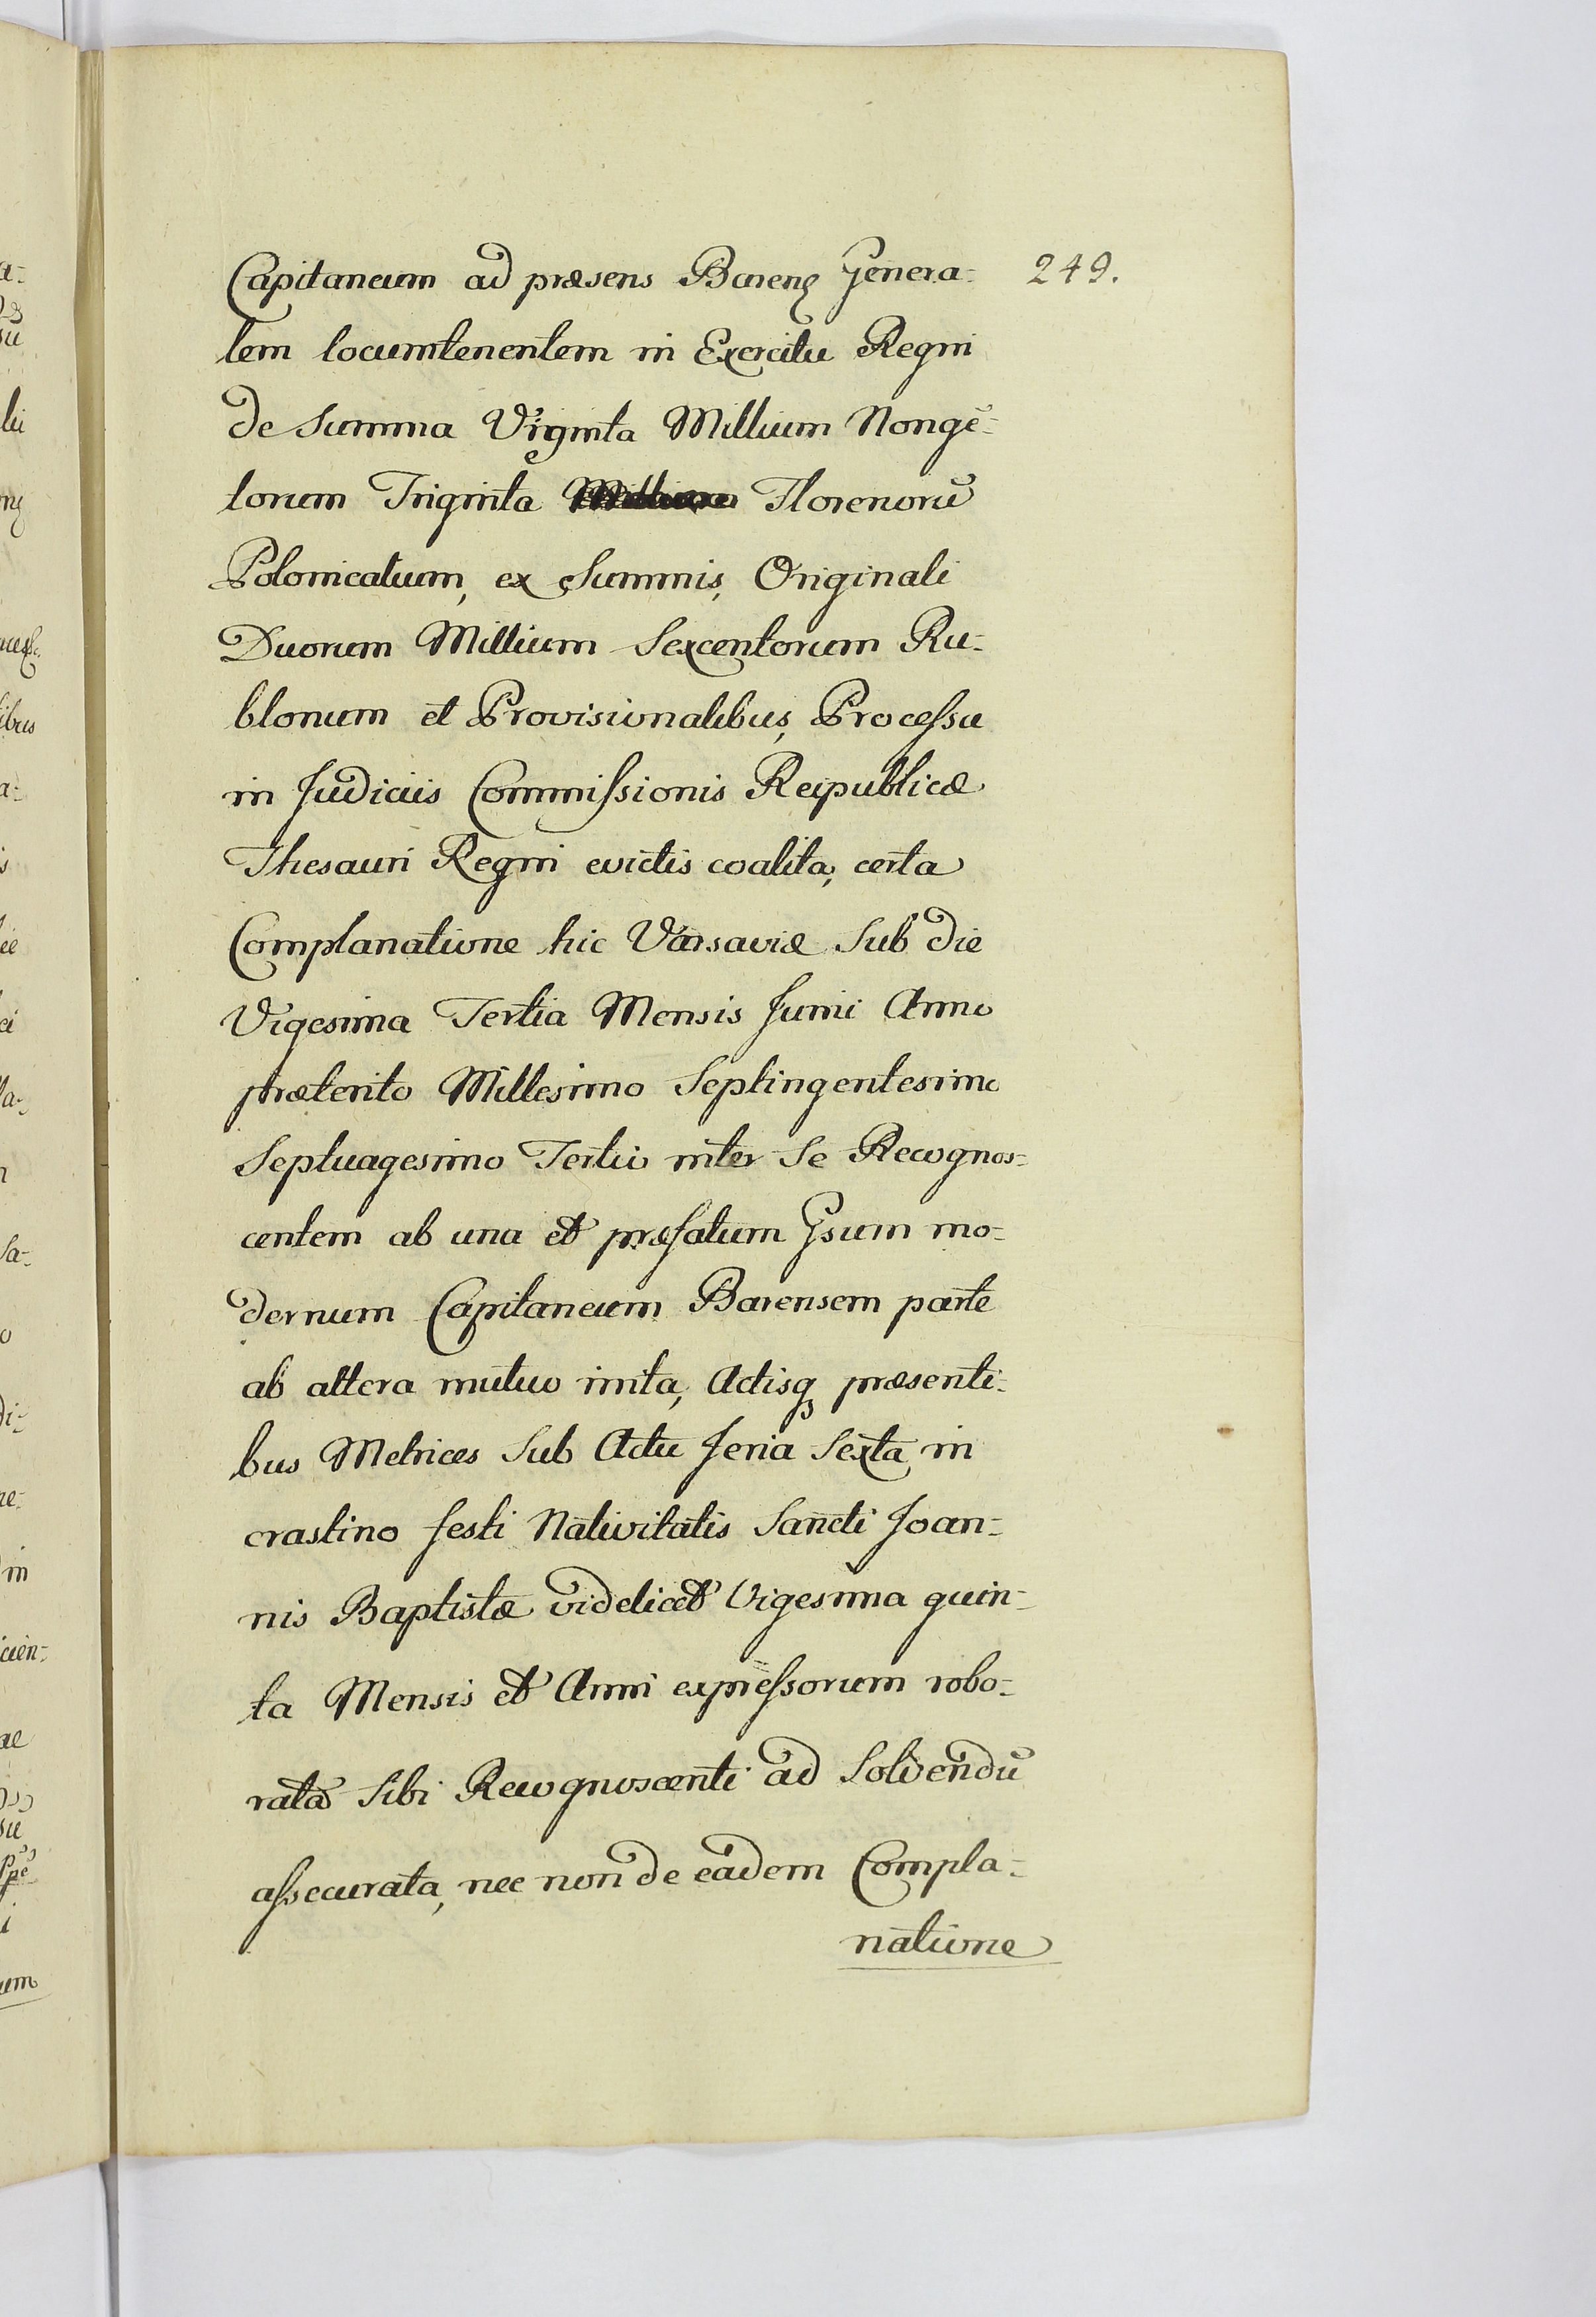 249.
Capitaneum ad præsens Bareng Genera-
lem locumtenentem in Exercitu Regni
de Summa Viginta Millium Nongē-
torum Triginta Florenorū
Polonicalium, ex Summis, Originali
Duorum Millium Sexcentorum Ru-
blonum et Provisionalibus, Processu
in Judiciis Commissionis Reipublicæ
Thesauri Regni evictis coalita, certa
Complanatione hic Varsaviæ Sub die
Vigesima Tertia Mensis Junii Anno
præterito Millesimo Septingentesimo
Septuagesimo Tertio inter Se Recognos-
centem ab una et præfatum Gsum mo-
dernum Capitaneum Barensem parte
ab altera mutuo inita, Actisq præsenti-
bus Metrices Sub Actu feria Sexta in
crastino festi Nativitatis Sancti Joan-
nis Baptistæ videlicet Vigesima quin-
ta Mensis et Anni expressorum robo-
rata Sibi Recognoscenti ad Solvendū
assecurata, nec non de eadem Compla-
natione